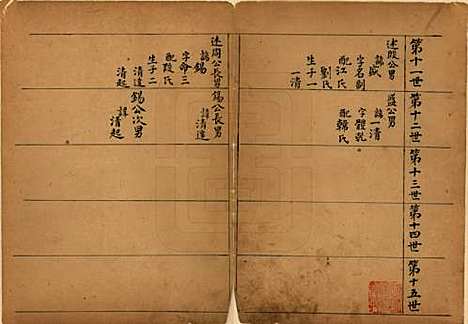 第十一世
第十二世
第十三世
第十四世
第十五世
述殷公男
諱
字名
配江氏
劉氏
生子一
一清
公男
諱一清
字體乾
配韓氏
述周公長男
諱錫
字命三
配段氏
生子二
清達
清起
錫公長男
諱清達
錫公次男
諱清起